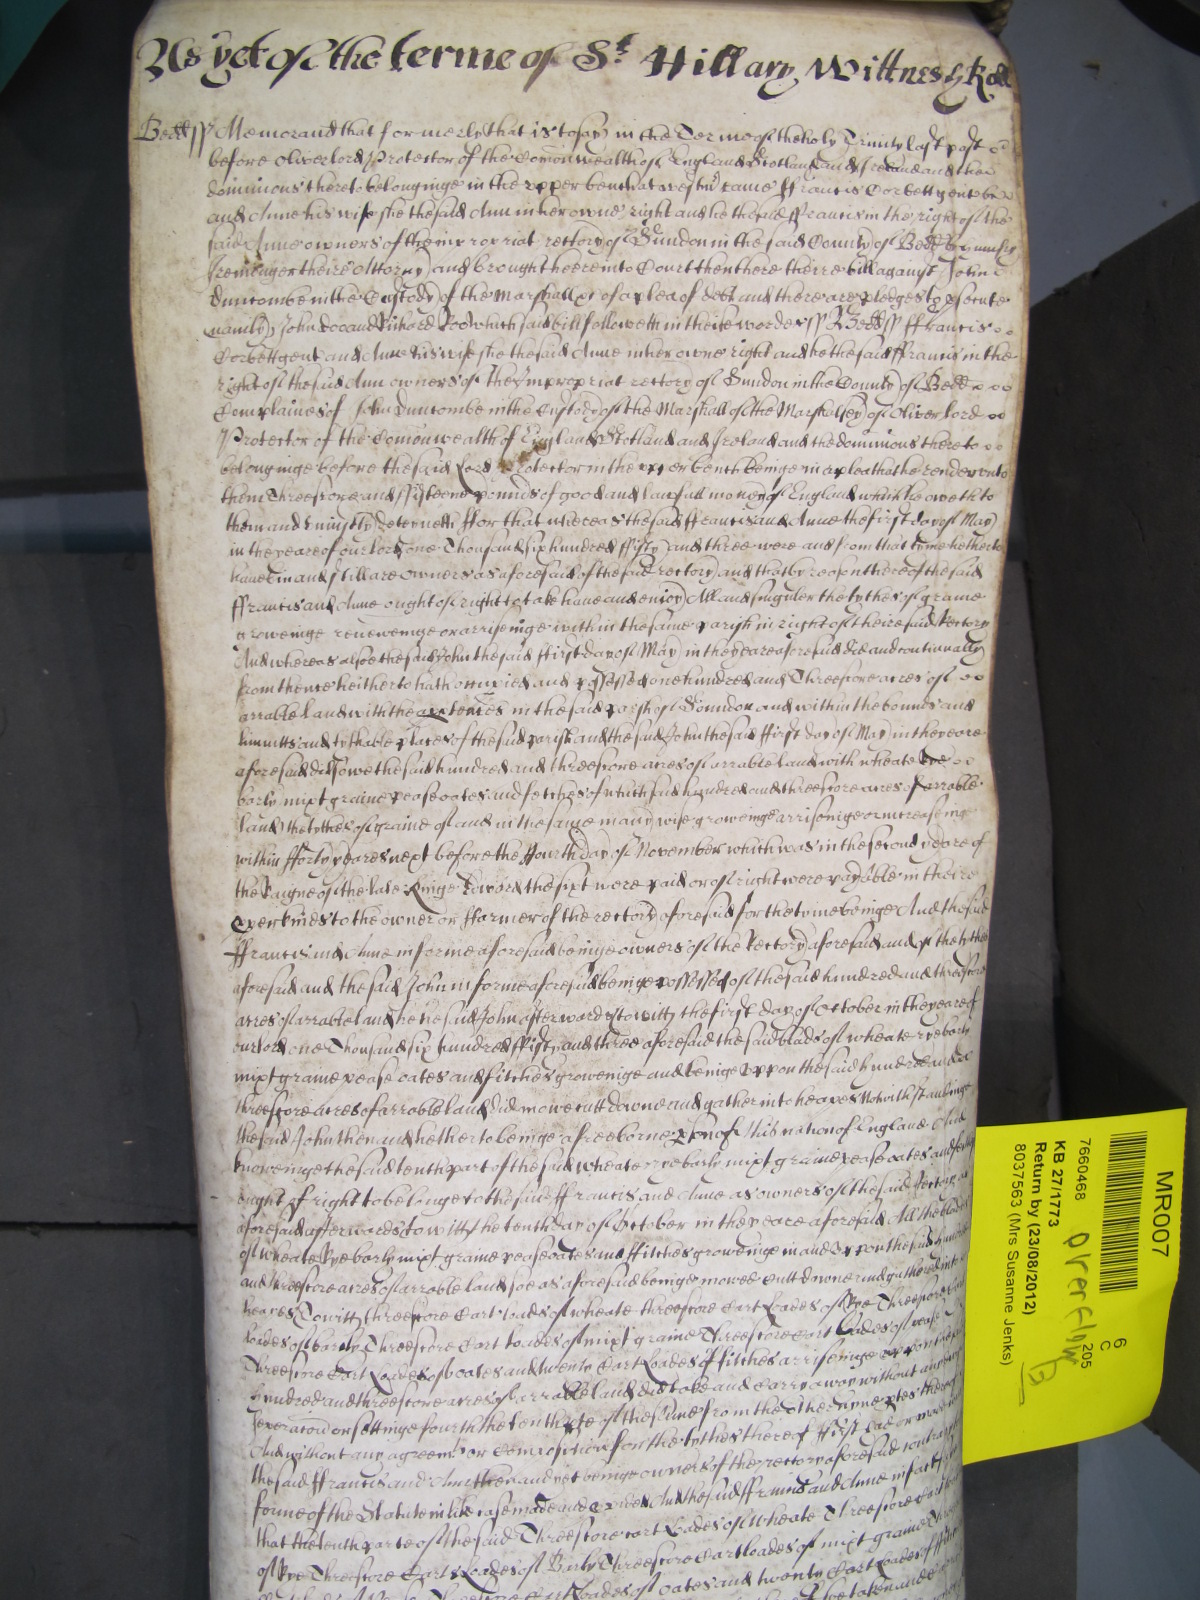 As yet of the terme of St Hillary Wittnes
Bedd ss Memorand that formerly that is to say in the Terme of the holy Trinity last past
before Oliver lord Protector of the Comonwealth of England Scotland and Ireland and the
dominions thereto belonginge in the upper bench at Westmr came ffrancis Corbett gent
and Anne his wife she the said Ann in her owne right and he the said ffrancis in the right of the
said Anne owners of the impropriat rectory of Sundon in the said County of Bedd by
Iremonger theire Attorny and brought heere into Court then there theire bill against John
Duncombe in the Custody of the Marshall of a plea of debt and there are pledges to psecute
namely John Doo and Richard Roo which said bill followeth in theise wordes ss Bedd ss ffrancis
Corbett gent and Anne his wife she the said Anne in her owne right and he the said ffrancis in the
right of the said Ann owners of the Impropriat rectory of Sundon in the County of Bedd
Complaines of John Duncombe in the Custody of the Marshall of the Marshalsey of Oliver lord
Protector of the Comonwealth of England Scotland and Ireland and the dominions thereto
belonginge before the said Lord Protector in the upper bench beinge in a plea that he render unto
them Threescore and ffifteene pounds of good and lawfull money of England which he oweth to
them and uniustly deteyneth ffor that whereas the said ffrancis and Anne the first day of May
in the yeare of our lord one Thousand six hundred ffifty and three were and from that tyme hetherto
have bin and still are owners as aforesaid of the said rectory and that by reason thereof the said
ffrancis and Anne ought of right to take have and enioy All and singuler the tythes of graine
groweinge reneweinge or arriseinge within the same parish in right of theire said Rectory
And whereas alsoe the said John the said ffirst day of May in the yeare aforesaid did and continually
from thence heitherto hath occupied and possessed one hundred and Threescore acres of
arrable land with the apptences in the said parish of Sundon and within the bounds and
limmitts and tythable places of the said parish and the said John the said ffirst day of May in the yeare
aforesaid did sowe the said hundred and threescore acres of arrable land with wheate Rye
barly mixt graine pease oates and fetches of which said hundred and threescore acres of arrable
land the tythes of graine of and in the same in any wise groweinge arriseinge or increaseinge
within fforty yeares next before the ffourth day of November which was in the second yeare of
the Raigne of the late Kinge Edward the sixt were paid or of right were payable in theire
 to the owner or ffarmer of the rectory aforesaid for the tyme beinge And the said
ffrancis and Anne in forme aforesaid beinge owners of the Rectory aforesaid and of the tythes
aforesaid and the said John in forme aforesaid beinge possessed of the said hundred and threescore
acres of arrable land he the said John afterwards to witt the first day of October in the yeare of
our lord one Thousand six hundred ffifty and three aforesaid the said blades of wheate rye barly
mixt graine pease oates and fitches groweinge and beinge uppon the said hundred and
threescore acres of arrable land did mowe cutt downe and gather into heapes Notwithstandinge
the said John then and hetherto beinge a freeborne pson of this nation of England And
knoweinge the said tenth part of the said wheate rye barly mixt graine pease oates and
ought of right to belonge to the said ffrancis and Anne as owners of the said Rectory
aforesaid afterwards to witt the tenth day of October in the yeare aforesaid All the blades
of wheate Rye barly mixt graine pease oates and ffitches groweinge in and uppon the said hundred
and threescore acres of arrable land soe as aforesaid beinge mowed cutt downe and gathered into
heapes To witt threescore Cart loads of wheate threescore Cart Loades of Rye Threescore Cart
loades of barly Threescore Cart loades of mixt graine Threescore Cart Loades of pease
Threescore Cart Loades of oates and twenty Cart Loades of ffitches arriseinge uppon the said
hundred and threescore acres of arrable land did take and carry away without any
seperacon or settinge fourth the tenth pte of the same from the other nyne ptes thereof
And without any agreemt or Composition for the tythes thereof ffirst had or made with
the said ffrancis and Anne then and yet beinge owners of the rectory aforesaid contrary
forme of the Statute in like case made and pvided And the said ffrancis and Anne in fact
that the tenth parte of the said Threescore cart Loades of wheate Threescore Cart
of Rye Threescore Cart Loades of Barly Threescore Cart loades of mixt graine
 of oates and twenty Cart Loades of
MR007
6
C
205
7660468
KB 27/1773
Return by (23/08/2012)
8037563 (Mrs Susanne Jenks)
overflow